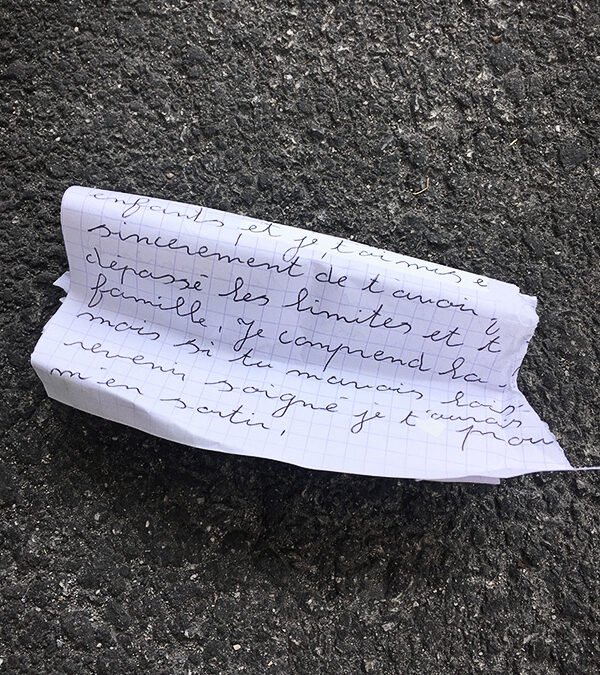 enfants, et je t'aimais e
sincerement de t avoir
dépassé les limites et t
famille, je comprend la
mais si tu mavais lais
revenir soigné je t'aurais prou
m'en sortir,